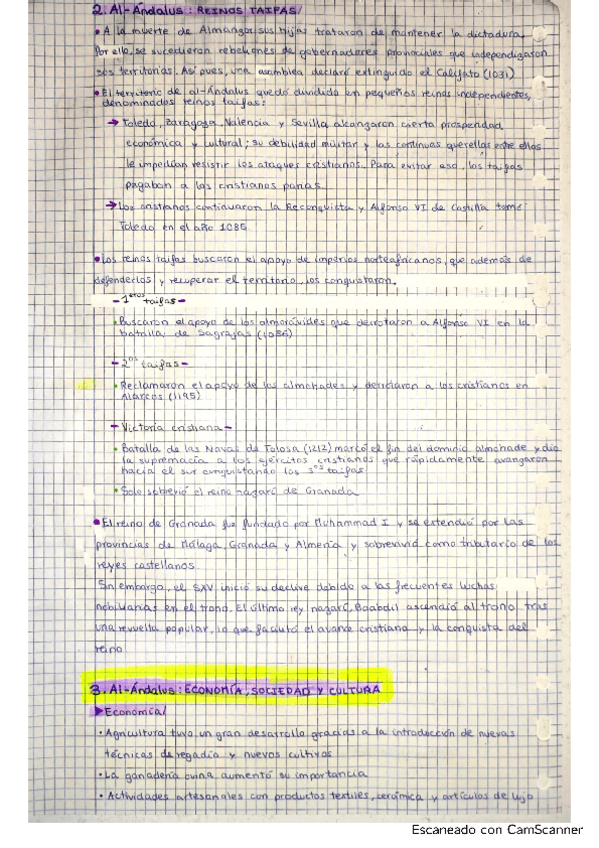 2. Al-Ándalus: REINOS TAIFAS/
• A la muerte de Almanzor sus hijos trataron de mantener la dictadura.
Por ello, se sucedieron rebeliones de gobernadores provinciales que independizaron
sus territorios. Así pues, una asamblea declaró extinguido el Califato (1031)
• El territorio de al-Ándalus quedó dividido en pequeños reinos independientes,
denominados reinos taifas:
→ Toledo, Zaragoza, Valencia y Sevilla alcanzaron cierta prosperidad
económica y cultural; su debilidad militar y las continuas querellas entre ellos
le impedían resistir los ataques cristianos. Para evitar eso, los taifas
pagaban a los cristianos parias.
→ Los cristianos continuaron la Reconquista y Alfonso VI de Castilla tomó
Toledo en el año 1085.
• Los reinos taifas buscaron el apoyo de imperios norteafricanos, que además de
defenderlos y recuperar el territorio, los conquistaron.
- 1eros taifas -
• Buscaron el apoyo de los almorávides que derrotaron a Alfonso VI en la
batalla de Sagrajas (1086)
- 2os taifas -
• Reclamaron el apoyo de los almohades y derrotaron a los cristianos en
Alarcos (1195)
- Victoria cristiana -
• Batalla de las Navas de Tolosa (1212) marcó el fin del dominio almohade y dio
la supremacía a los ejércitos cristianos que rápidamente avanzaron
hacia el sur conquistando los 3os taifas
• Solo sobrevió el reino nazarí de Granada
• El reino de Granada fue fundado por Muhammad I y se extendió por las
provincias de Málaga, Granada y Almería y sobrevivió como tributario de los
reyes castellanos.
Sin embargo, el SXV inició su declive debido a las frecuentes luchas
nobiliarias en el trono. El último rey nazarí, Boabdil ascendió al trono tras
una revuelta popular, lo que facilitó el avance cristiano y la conquista del
reino
3. Al-Ándalus: ECONOMÍA, SOCIEDAD Y CULTURA
▶ Economía/
• Agricultura tuvo un gran desarrollo gracias a la introducción de nuevas
técnicas de regadío y nuevos cultivos
• La ganadería ovina aumentó su importancia
• Actividades artesanales con productos textiles, cerámica y artículos de lujo
Escaneado con CamScanner